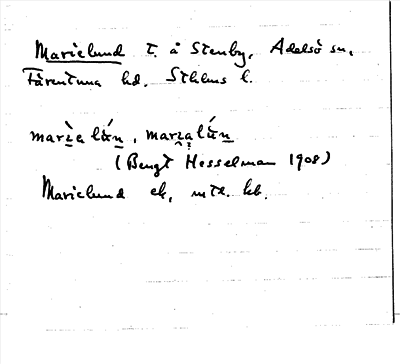 Marielund t. å Stenby, Adelsö sn,
Färentuna hd. Sthlms l.
marìe lún, marıa lún
(Bengt Hesselman 1908)
Marielund ek, mtl. kb.